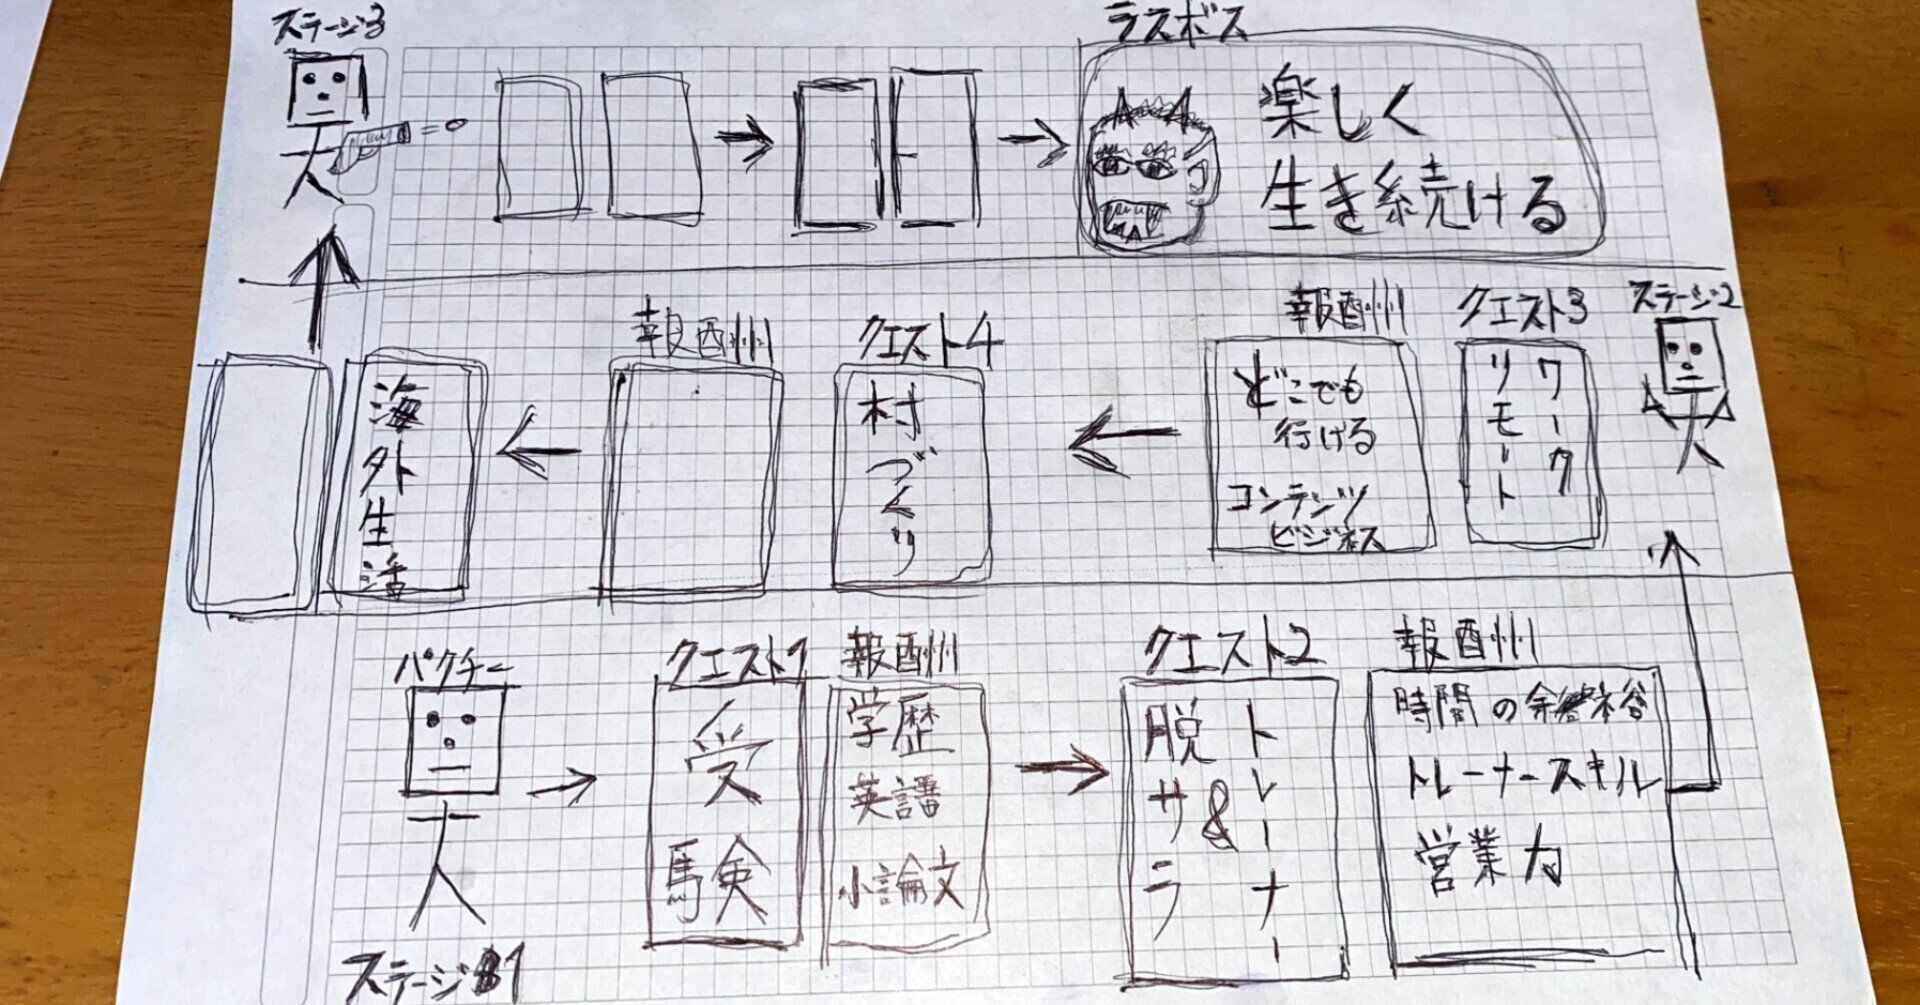 ステージ3
ラスボス
楽しく
生き続ける
ステージ2
クエスト3
ワーク
リモート
報酬
どこでも
行ける
コンテンツ
ビジネス
クエスト4
村づくり
報酬
海外生活
パクチー
ステージ1
クエスト1
受験
報酬
学歴
英語
小論文
クエスト2
脱サラ
&
トレーナー
報酬
時間の余裕
トレーナースキル
営業力